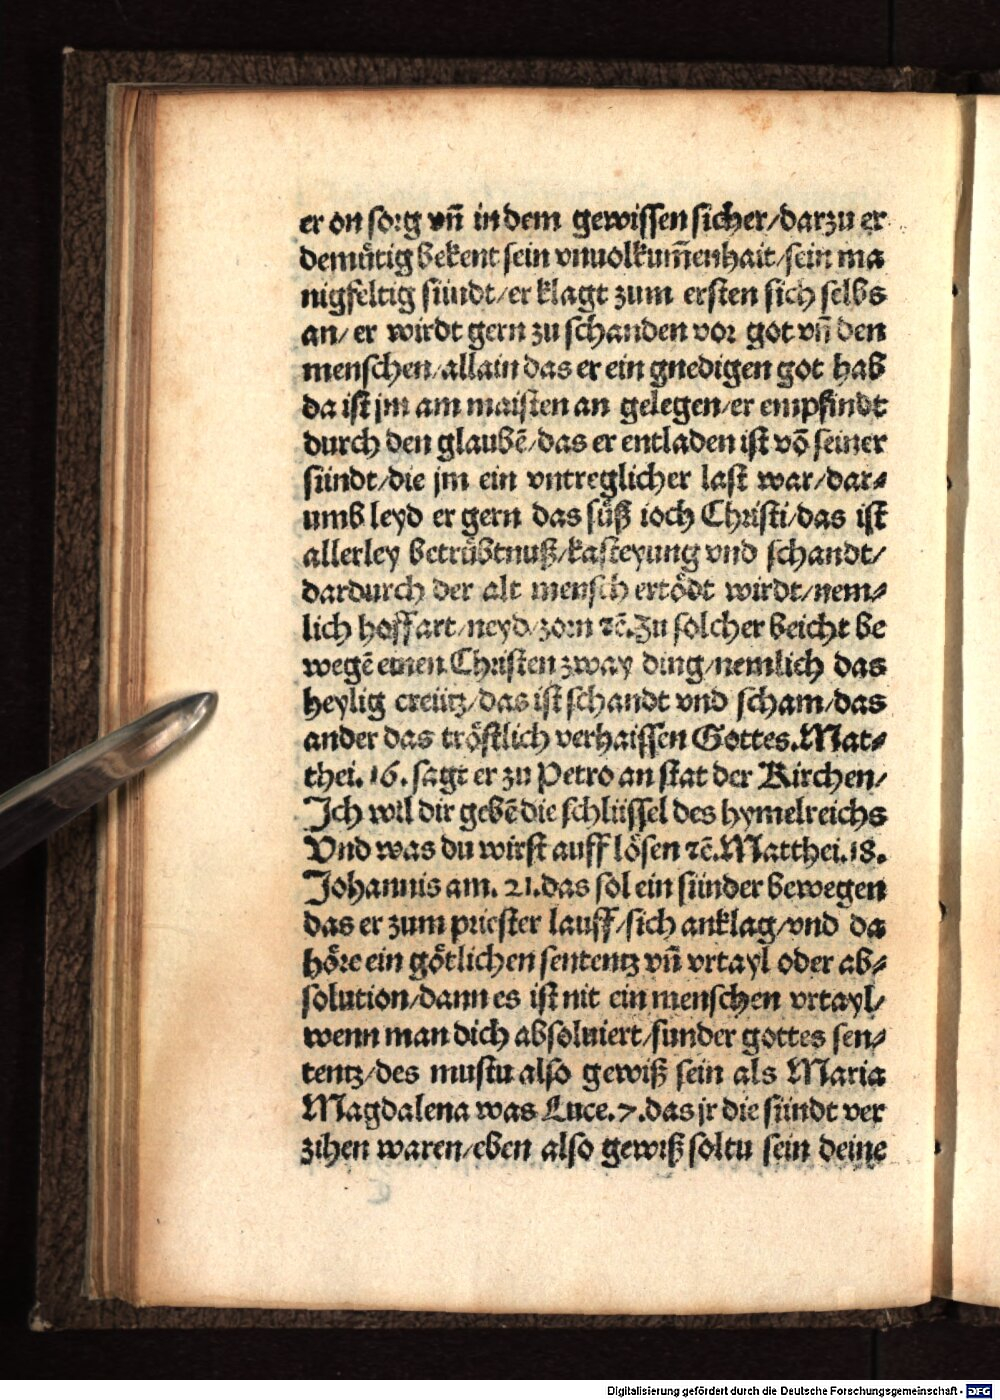 er on sorg vñ in dem gewissen sicher/darzu er
demuͤtig bekent sein vnuolkum̄enhait/sein ma
nigfeltig sündt/er klagt zum ersten sich selbs
an/er wirdt gern zu schanden vor got vñ den
menschen/allain das er ein gnedigen got hab
da ist jm am maisten an gelegen/er empfindt
durch den glaubē/das er entladen ist vō seiner
sündt/die jm ein vntreglicher last war/dar⸗
umb leyd er gern das suͤß ioch Christi/das ist
allerley betruͤbtnuß/kasteyung vnd schandt/
dardurch der alt mensch ertoͤdt wirdt/nem⸗
lich hoffart/neyd/zorn ⁊c̄.Zu solcher beicht be
wegē einen Christen zway ding/nemlich das
heylig creütz/das ist schandt vnd scham/das
ander das troͤstlich verhaissen Gottes.Mat⸗
thei.16.sagt er zu Petro an stat der Kirchen/
Ich wil dir gebē die schlüssel des hymelreichs
Vnd was du wirst auff loͤsen ⁊c̄.Matthei.18.
Johannis am.21.das sol ein sünder bewegen
das er zum priester lauff/sich anklag/vnd da
hoͤre ein goͤtlichen sententz vñ vrtayl oder ab⸗
solution/dann es ist nit ein menschen vrtayl/
wenn man dich absoluiert/sunder gottes sen⸗
tentz/des mustu also gewiß sein als Maria
Magdalena was Luce.7.das jr die sündt ver
zihen waren/eben also gewiß soltu sein deine
Digitalisierung gefördert durch die Deutsche Forschungsgemeinschaft - DFG